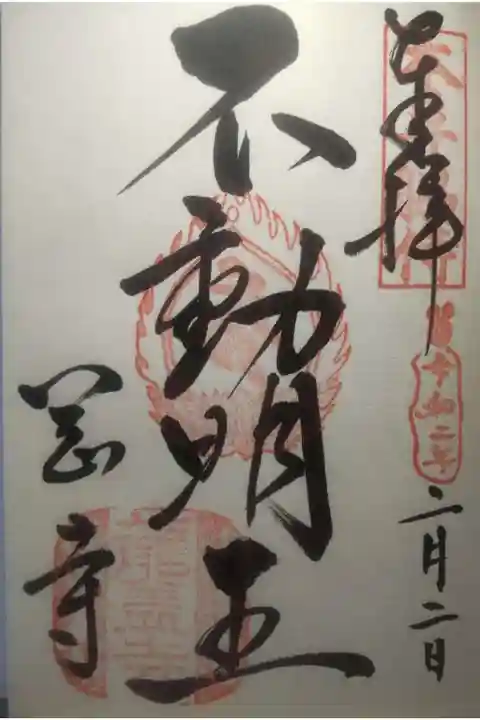 奉拝
令和二年
二月二日
不動明王
岡寺